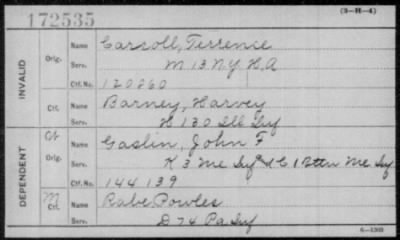 172535 (3-H-4)
INVALID
Orig. Name Carroll, Terrence
Serv. M 13 N.Y. H.A
Ctf. No. 120260
Ctf. Name Barney, Harvey
Serv. H 130 Ills Inf
DEPENDENT
Ct
Orig. Name Gaslin, John F
Serv. K 3 Me Inf & C 12th Me Inf
Ctf. No. 144139
M
Ctf. Name Rabe Powles
Serv. D 74 Pa Inf